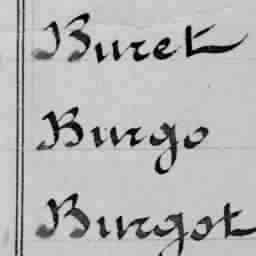 Buret
Burgo
Burgot